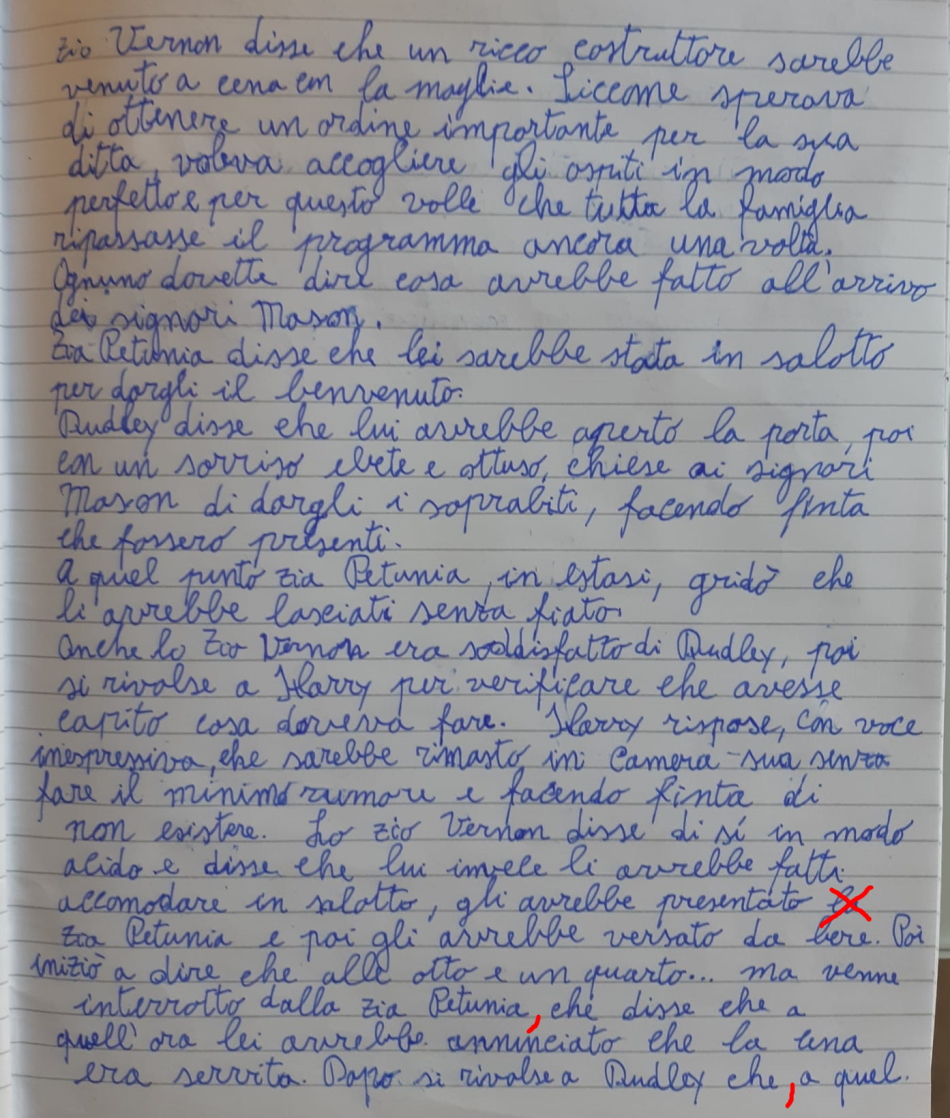 zio Vernon disse che un ricco costruttore sarebbe
venuto a cena con la moglie. Siccome sperava
di ottenere un ordine importante per la sua
ditta, voleva accogliere gli ospiti in modo
perfetto e per questo volle che tutta la famiglia
ripassasse il programma ancora una volta.
Ognuno dovette dire cosa avrebbe fatto all'arrivo
dei signori Mason.
Zia Petunia disse che lei sarebbe stata in salotto
per dargli il benvenuto.
Dudley disse che lui avrebbe aperto la porta, poi
con un sorriso ebete e ottuso, chiese ai signori
Mason di dargli i soprabiti, facendo finta
che fossero presenti.
A quel punto zia Petunia, in estasi, gridò che
li avrebbe lasciati senza fiato.
Anche lo Zio Vernon era soddisfatto di Dudley, poi
si rivolse a Harry per verificare che avesse
capito cosa doveva fare. Harry rispose, con voce
inespressiva, che sarebbe rimasto in camera sua senza
fare il minimo rumore e facendo finta di
non esistere. Lo zio Vernon disse di sí in modo
acido e disse che lui invece li avrebbe fatti
accomodare in salotto, gli avrebbe presentato la
zia Petunia e poi gli avrebbe versato da bere. Poi
iniziò a dire che alle otto e un quarto... ma venne
interrotto dalla zia Petunia, che disse che a
quell'ora lei avrebbe annunciato che la cena
era servita. Dopo si rivolse a Dudley che, a quel.